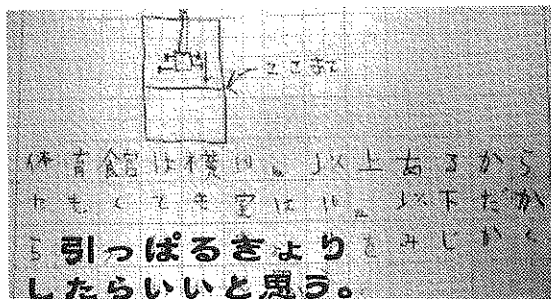 ここまで
体育館は横10m以上あるから
でも、くても室は10m以下だか
ら引っぱるきょりをみじかく
したらいいと思う。